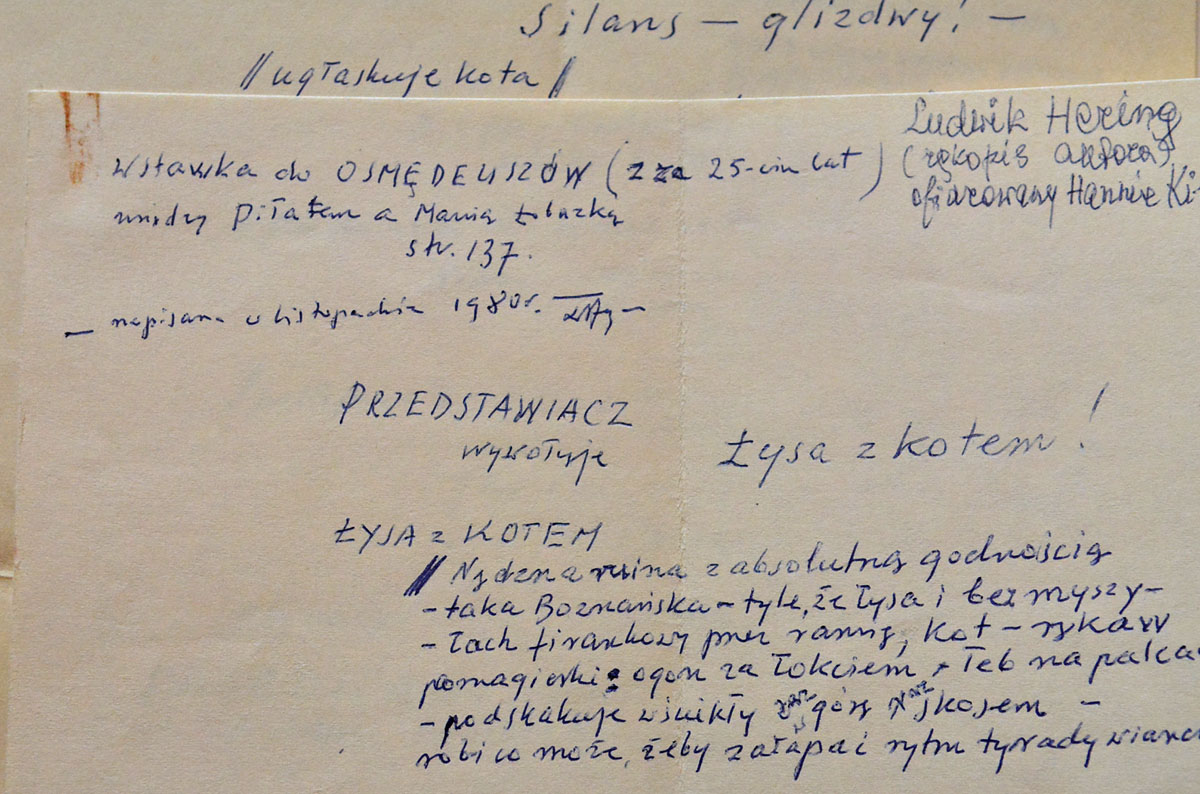 Silans — glizdwy! —
// ugłaskuje kota //
Ludwik Hering
(rękopis autora)
ofiarowany Hannie Ki-
Wstawka do OSMĘDEUSZÓW (zza 25-ciu lat)
między Piłatem a Manią
str. 137.
— napisana w listopadzie 1980r.
PRZEDSTAWIACZ
wywołuje
Łysa z kotem!
ŁYSA z KOTEM
// Nędzna ruina z absolutną godnością
- taka Boznańska - tyle, że łysa i bez myszy -
- łach firankowy przez ramię, kot - rękaw
pomagierski: ogon za łokciem, łeb na palca
- podskakuje wściekły raz górą raz skosem -
robi co może, żeby załapać rytm tyrady